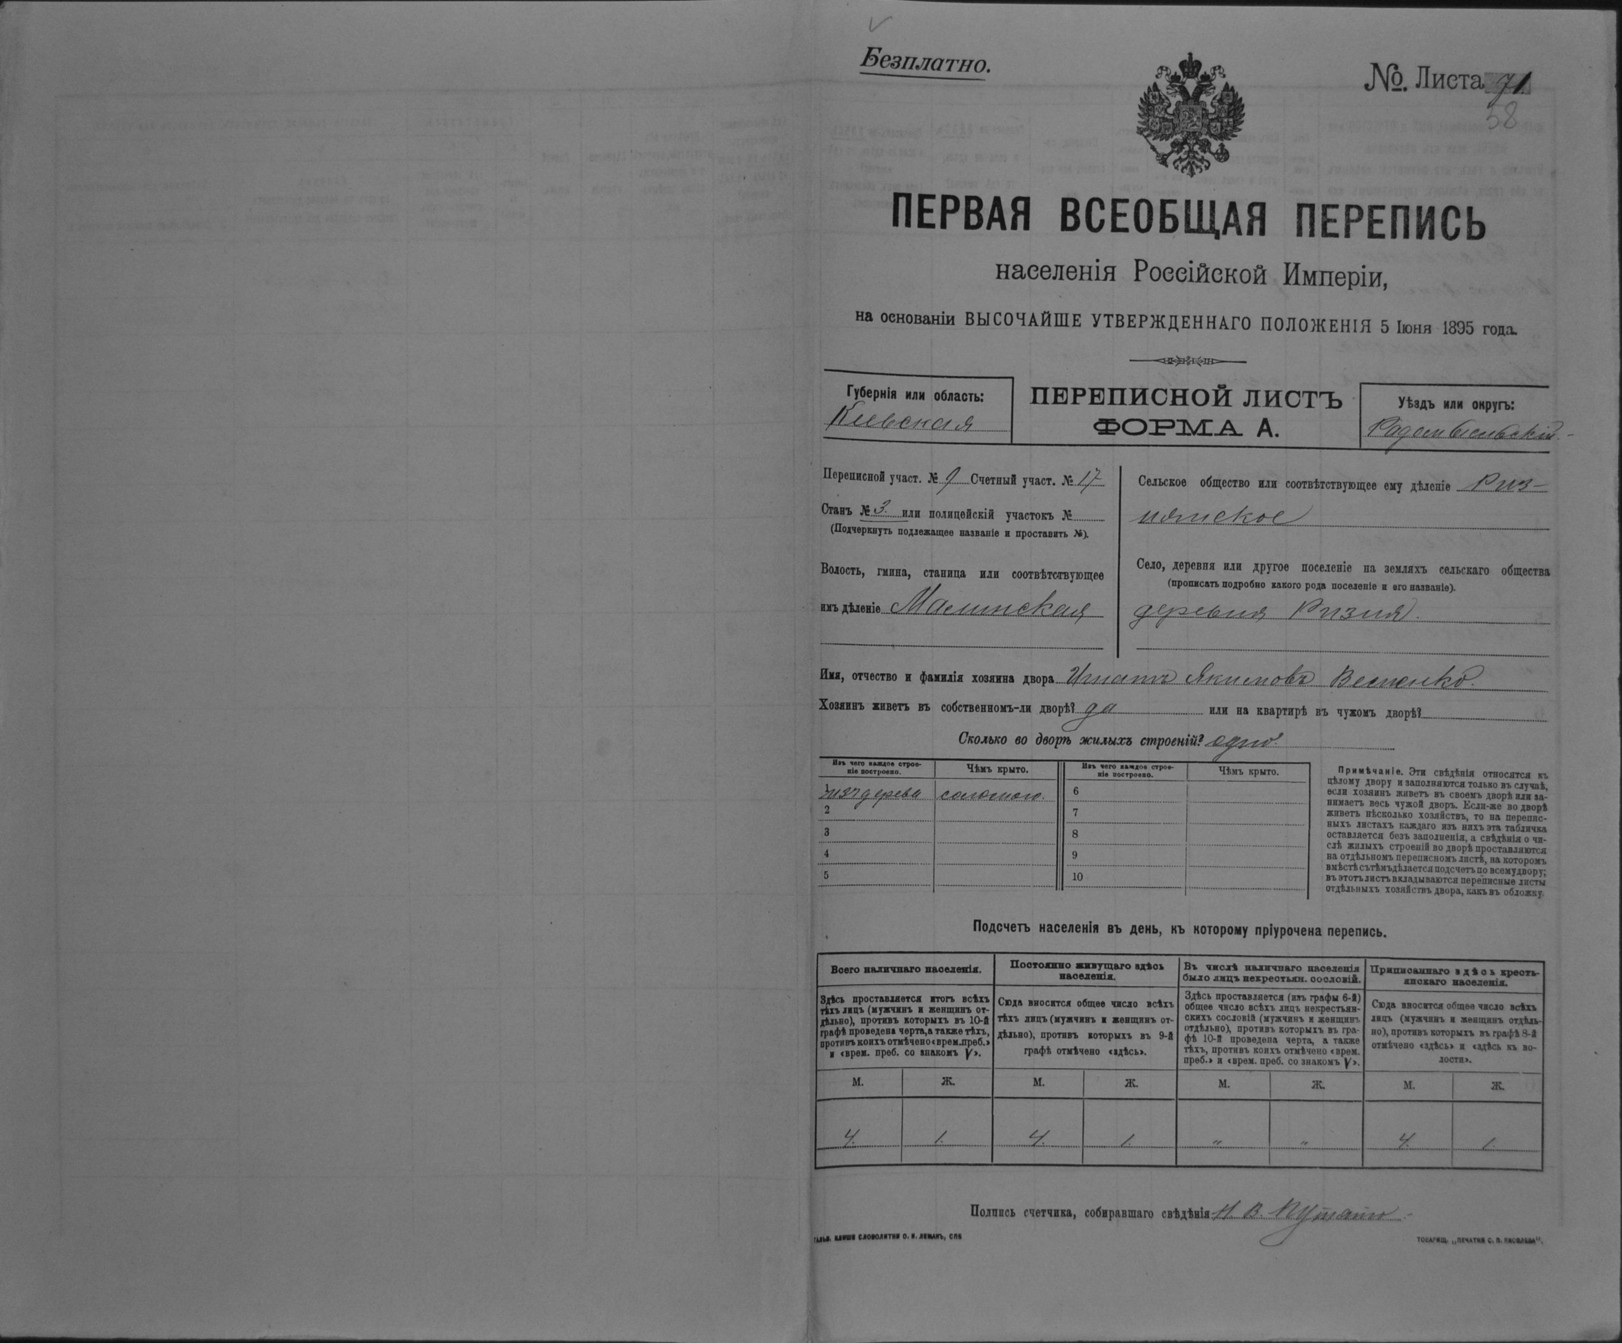 Безплатно.
№. Листа 91
58
ПЕРВАЯ ВСЕОБЩАЯ ПЕРЕПИСЬ
населенія Россійской Имперіи,
на основаніи ВЫСОЧАЙШЕ УТВЕРЖДЕННАГО ПОЛОЖЕНІЯ 5 Іюня 1895 года.
Губернія или область:
Кіевская
ПЕРЕПИСНОЙ ЛИСТЪ
ФОРМА А.
Уѣздъ или округъ:
Радомысльскій
Переписной участ. № 9 Счетный участ. № 17
Станъ № 3. или полицейскій участокъ №
(Подчеркнуть подлежащее названіе и проставить №).
Волость, гмина, станица или соотвѣтствующее
имъ дѣленіе Малинская
Сельское общество или соотвѣтствующее ему дѣленіе Риз-
нянское
Село, деревня или другое поселеніе на земляхъ сельскаго общества
(прописать подробно какого рода поселеніе и его названіе).
деревня Ризня.
Имя, отчество и фамилія хозяина двора Игнатъ Якимовъ
Хозяинъ живетъ въ собственномъ-ли дворѣ? да или на квартирѣ въ чужомъ дворѣ?
Сколько во дворѣ жилыхъ строеній? одно.
Изъ чего каждое строе-
ніе построено.
Чѣмъ крыто.
Изъ чего каждое строе-
ніе построено.
Чѣмъ крыто.
1 изъ дерева соломою. 6
2 7
3 8
4 9
5 10
Примѣчаніе. Эти свѣдѣнія относятся къ
цѣлому двору и заполняются только въ случаѣ,
если хозяинъ живетъ въ своемъ дворѣ или за-
нимаетъ весь чужой дворъ. Если-же во дворѣ
живетъ нѣсколько хозяйствъ, то на перепис-
ныхъ листахъ каждаго изъ нихъ эта табличка
оставляется безъ заполненія, а свѣдѣнія о чи-
слѣ жилыхъ строеній во дворѣ проставляются
на отдѣльномъ переписномъ листѣ, на которомъ
вмѣстѣ съ тѣмъ дѣлается подсчетъ по всему двору;
въ этотъ листъ вкладываются переписные листы
отдѣльныхъ хозяйствъ двора, какъ въ обложку.
Подсчетъ населенія въ день, къ которому пріурочена перепись.
Всего наличнаго населенія.
Здѣсь проставляется итогъ всѣхъ
тѣхъ лицъ (мужчинъ и женщинъ от-
дѣльно), противъ которыхъ въ 10-й
графѣ проведена черта, а также тѣхъ,
противъ коихъ отмѣчено «врем. преб.»
и «врем. преб. со знакомъ V».
Постоянно живущаго здѣсь
населенія.
Сюда вносится общее число всѣхъ
тѣхъ лицъ (мужчинъ и женщинъ от-
дѣльно), противъ которыхъ въ 9-й
графѣ отмѣчено «здѣсь».
Въ числѣ наличнаго населенія
было лицъ некрестьян. сословій.
Здѣсь проставляется (изъ графы 6-й)
общее число всѣхъ лицъ некрестьян-
скихъ сословій (мужчинъ и женщинъ
отдѣльно), противъ которыхъ въ гра-
фѣ 10-й проведена черта, а также
тѣхъ, противъ коихъ отмѣчено «врем.
преб.» и «врем. преб. со знакомъ V».
Приписаннаго здѣсь кресть-
янскаго населенія.
Сюда вносится общее число всѣхъ
лицъ (мужчинъ и женщинъ отдѣль-
но), противъ которыхъ въ графѣ 8-й
отмѣчено «здѣсь» и «здѣсь къ во-
лости».
М. Ж. М. Ж. М. Ж. М. Ж.
4. 1. 4. 1. " " 4. 1.
Подпись счетчика, собиравшаго свѣдѣнія Н. В.
ГАЛЬВ. КЛИШЕ СЛОВОЛИТНИ О. И. ЛЕМАНЪ, СПБ